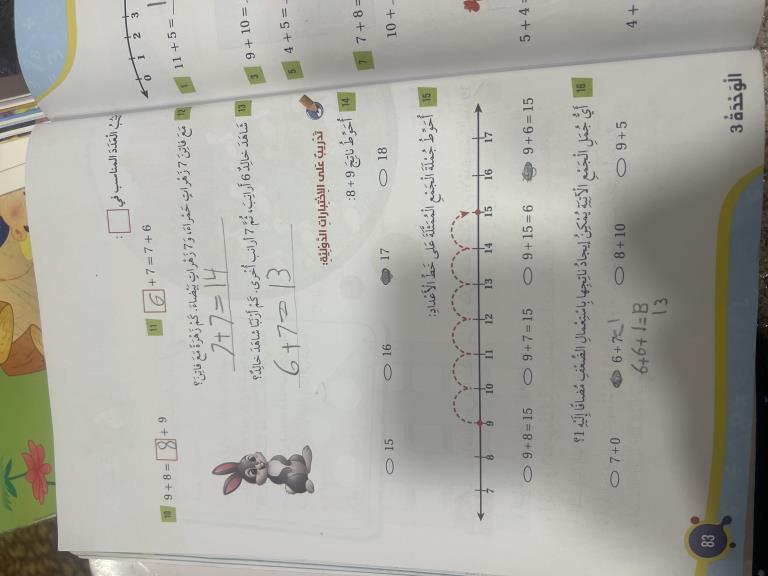 0 1 2 3
1 11 + 5 =
3 9 + 10 =
5 4 + 5 =
7 7 + 8 =
10 +
5 + 4 =
4 +
الْوَحْدَةُ 3
الْعَدَدَ الْمُناسِبَ في □ :
10 9 + 8 = 8 + 9
11 6 + 7 = 7 + 6
12 مَعَ فاتِنَ 7 زَهْراتٍ حَمْراءَ، وَ 7 زَهْراتٍ بَيْضاءَ. كَمْ زَهْرَةً مَعَ فاتِنَ؟
7+7=14
13 شاهَدَ خالِدٌ 6 أَرانِبَ، ثُمَّ 7 أَرانِبَ أُخْرى. كَمْ أَرْنَبًا شاهَدَ خالِدٌ؟
6+7=13
تَدْريبٌ عَلى الِاخْتِباراتِ الدَّوْلِيَّةِ:
14 أُحَوِّطُ ناتِجَ 9 + 8:
15 16 17 18
15 أُحَوِّطُ جُمْلَةَ الْجَمْعِ الْمُمَثَّلَةَ عَلى خَطِّ الْأَعْدادِ:
7 8 9 10 11 12 13 14 15 16 17
9 + 8 = 15 9 + 7 = 15 9 + 15 = 6 9 + 6 = 15
16 أَيُّ جُمَلِ الْجَمْعِ الْآتِيَةِ يُمْكِنُ إيجادُ ناتِجِها بِاسْتِعْمالِ الضِّعْفِ مُضافًا إِلَيْهِ 1؟
7 + 0 6 + 7 8 + 10 9 + 5
6+6+1=13
13
83